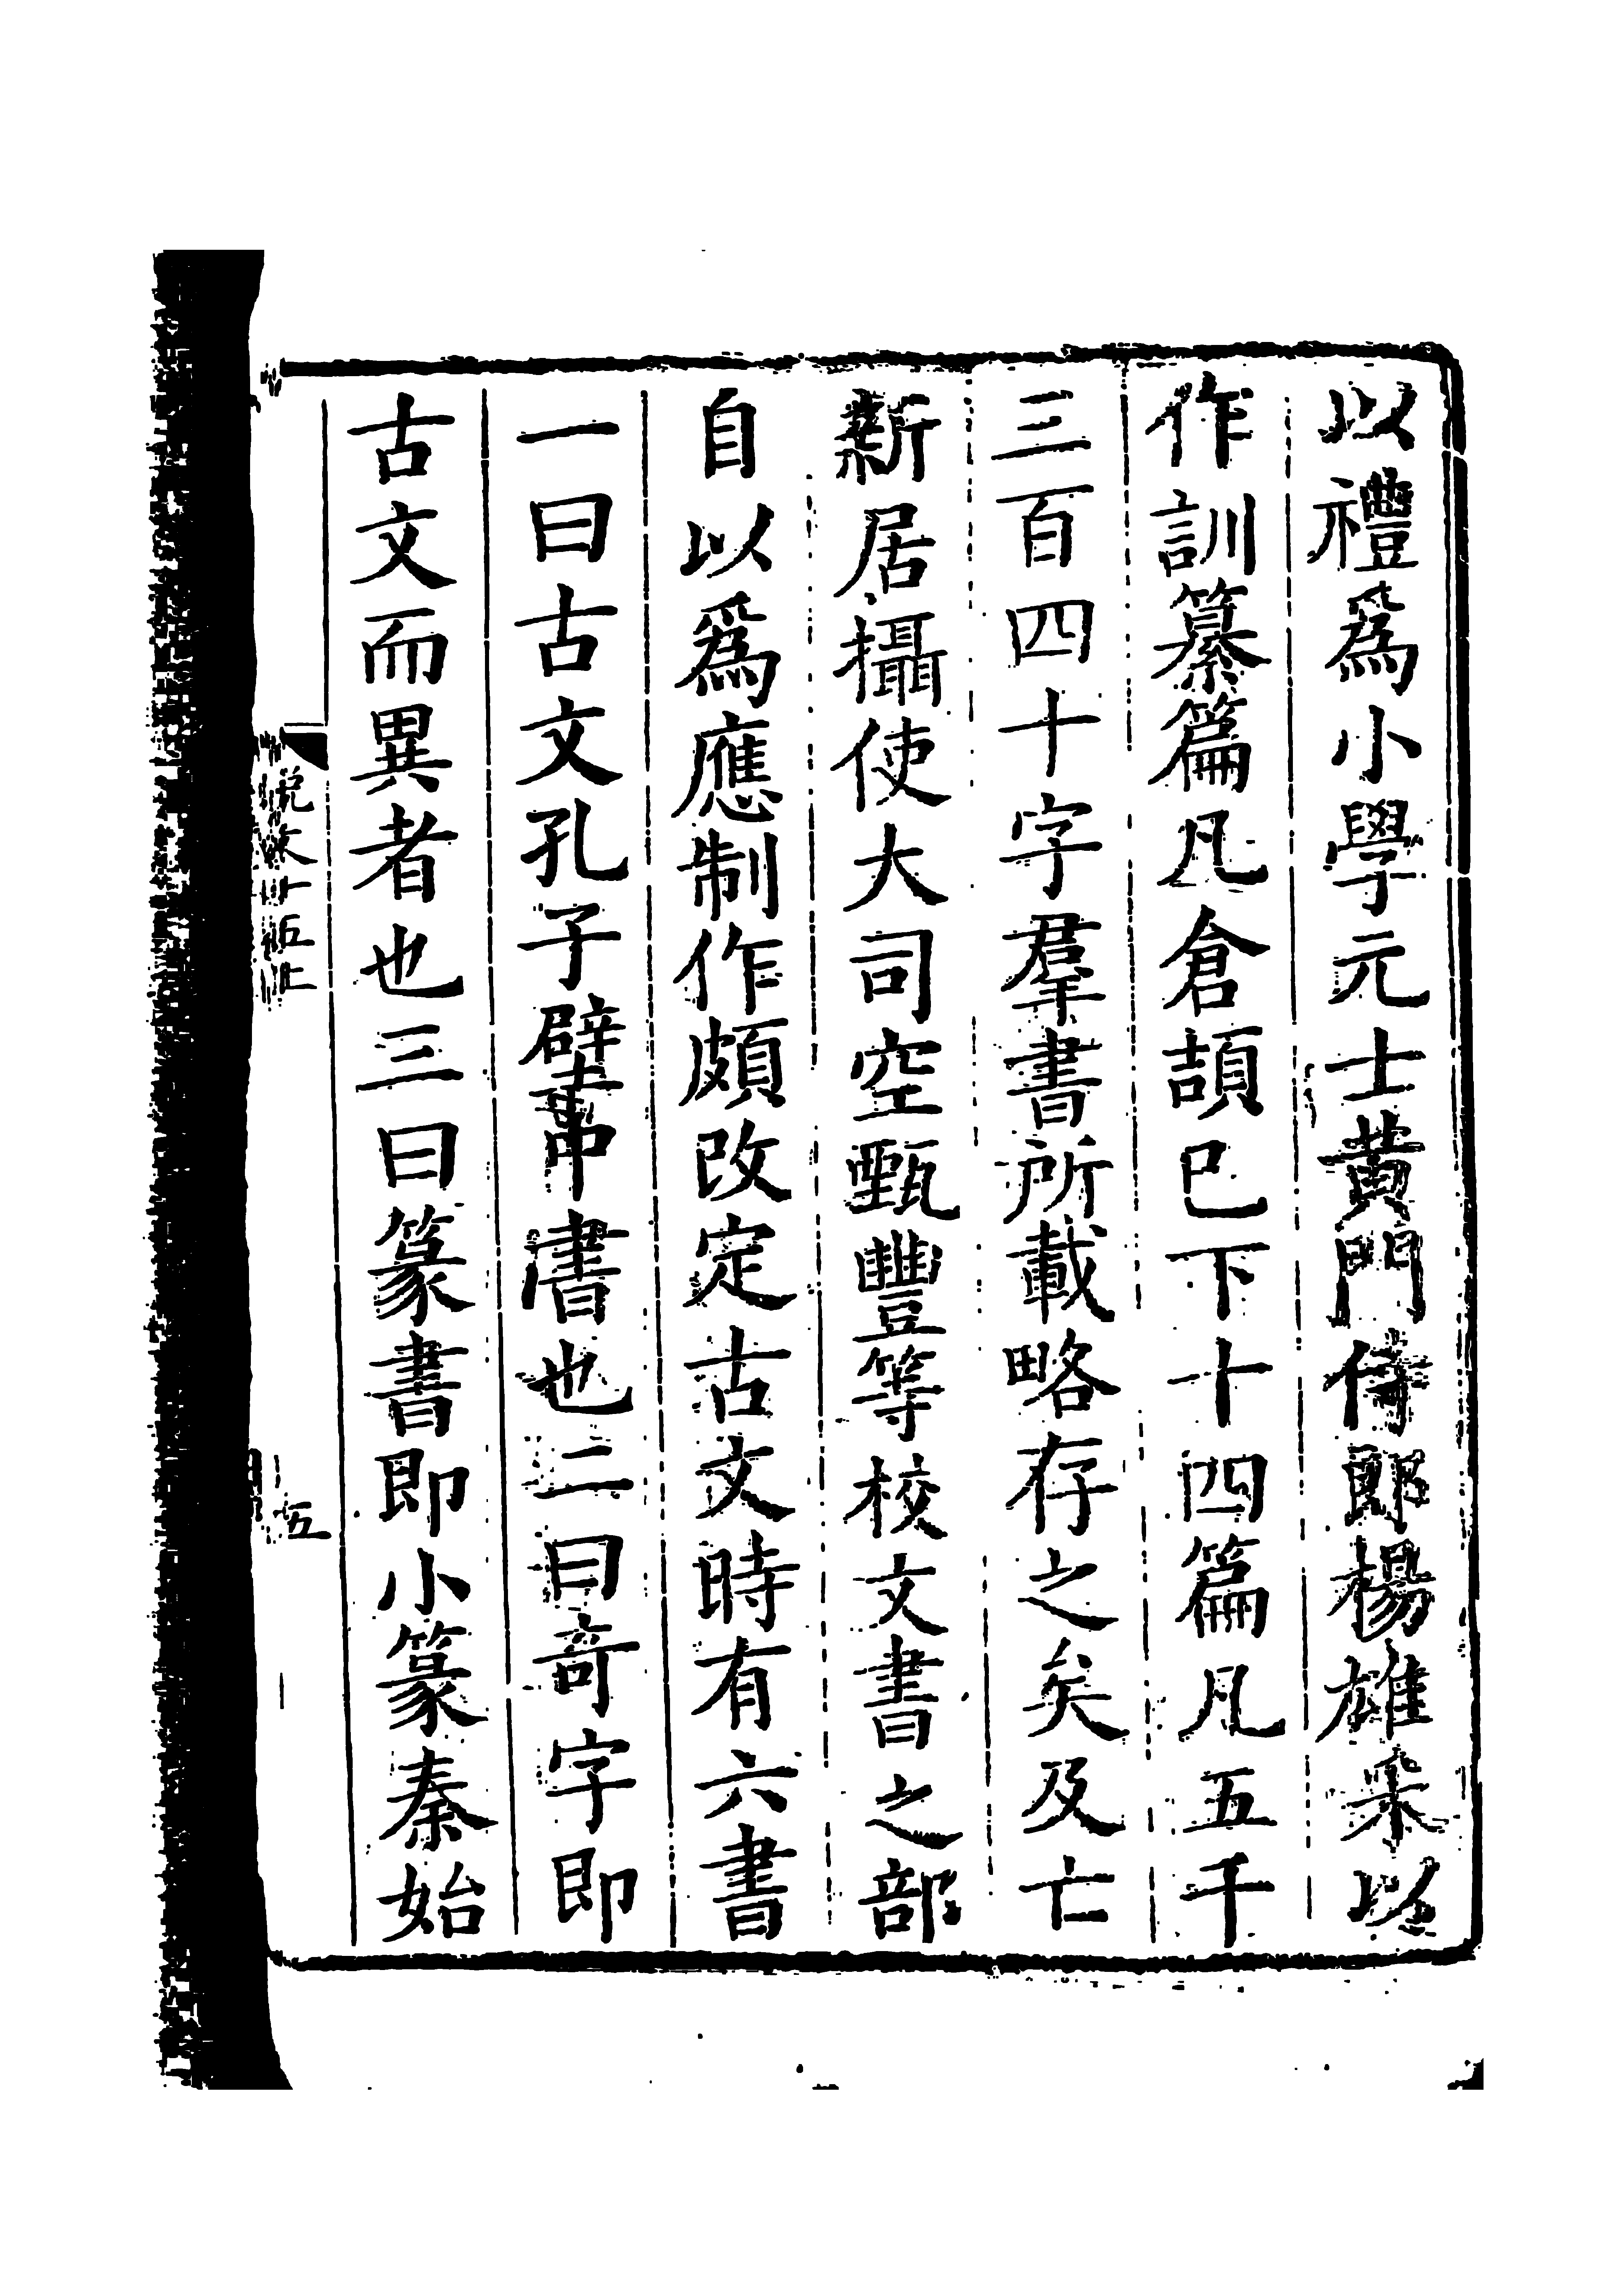 以禮爲小學元士黄門侍郎楊雄采以
作訓纂篇凡倉頡已下十四篇凡五千
三百四十字羣書所載略存之矣及亡
新居攝使大司空甄豐等校文書之部
自以爲應制作頗改定古文時有六書
一曰古文孔子壁中書也二曰奇字即
古文而異者也三曰篆書即小篆秦始
説文十五上
五